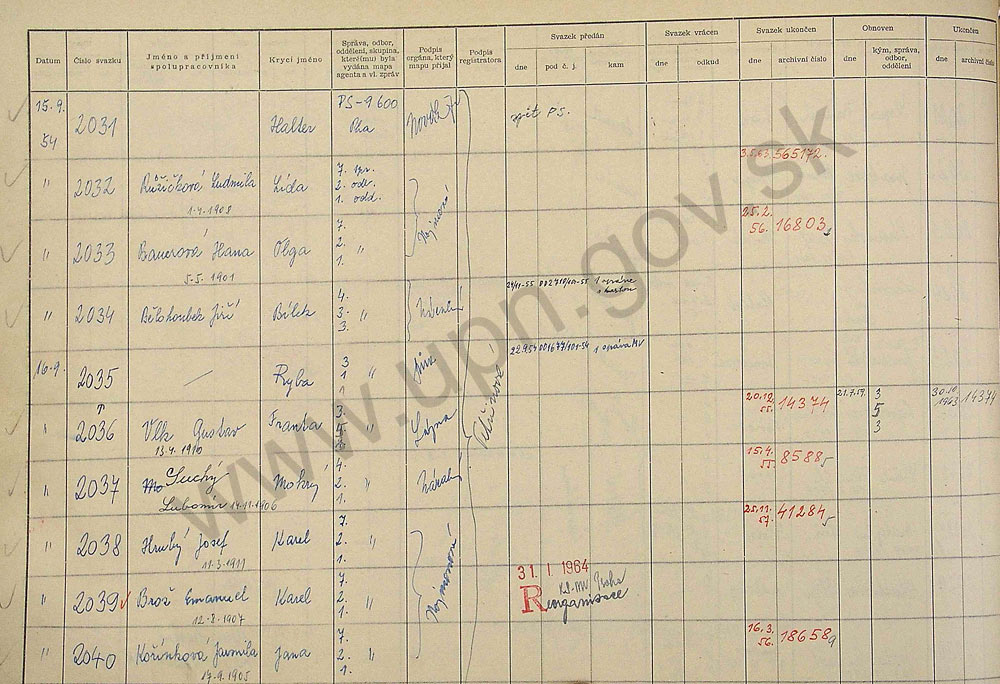 Datum
Číslo svazku
Jméno a příjmení spolupracovníka
Krycí jméno
Správa, odbor, oddělení, skupina, které(mu) byla vydána mapa agenta a vl. zpráv
Podpis orgána, který mapu přijal
Podpis registratora
Svazek předán
dne
pod č. j.
kam
Svazek vrácen
dne
odkud
Svazek ukončen
dne
archivní číslo
Obnoven
dne
kým, správa, odbor, oddělení
Ukončen
dne
archivní číslo
15.9. 54 2031 Halter PS-9600 Pha zpět PS. 3.5.63 565172.
" 2032 Růžičková Ludmila Lída 7. spr. 2. odb. 1. odd. 25.2. 56. 16803
1.4.1908
" 2033 Bauerová Hana Olga 7. 2. 1. "
5.5.1901
" 2034 Bělohoubek Jiří Bílek 4. 3. 3. " 1 správa
16.9. 2035 — Ryba 3 1 1 " 22.9.54 1 správa MV
" 2036 Vlk Gustav Franta 3. 5 3 " 20.12. 55. 14374 21.7.59. 3 5 3 30.10 1963 14374
13.4.1910
" 2037 Suchý Mokrý 4. 2. 1. " 15.4. 55. 8588
Lubomír 14.11.1906
" 2038 Hrubý Josef Karel 7. 2. 1. " 25.11. 57. 41284
11.3.1911
" 2039 Brož Emanuel Karel 7. 2. 1. " 31. 1. 1964 KS-MV Praha Reorganisace
12.8.1907
" 2040 Kořínková Jarmila Jana 7. 2. 1. " 16.3. 56. 18658
17.9.1905
www.upn.gov.sk